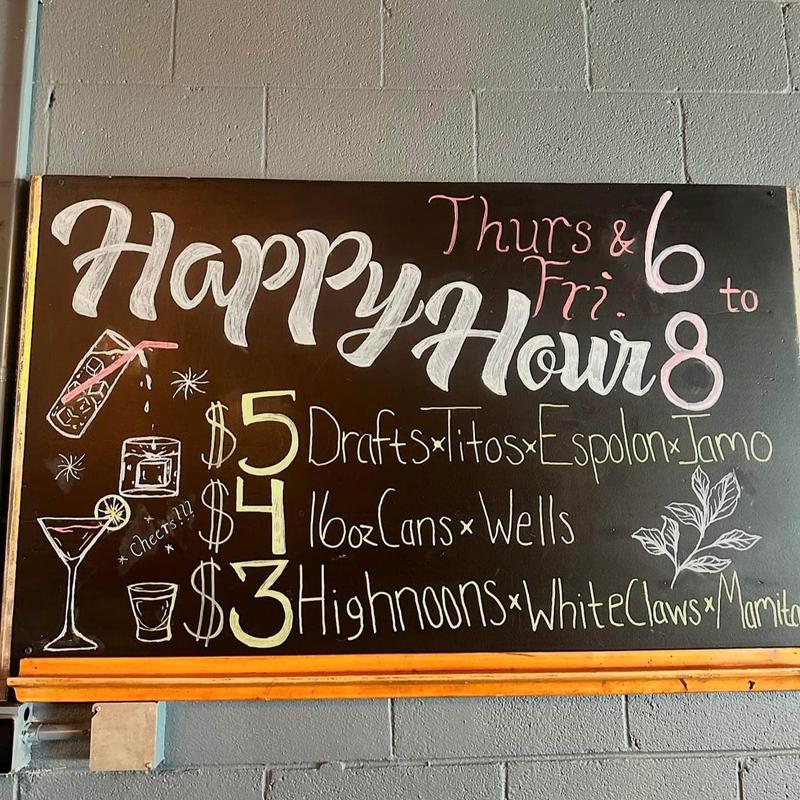 Happy Hour
Thurs & Fri. 6 to 8
$5 Drafts x Titos x Espolon x Jamo
$4 16oz Cans x Wells
$3 Highnoons x White Claws x Mamito
Cheers!!!